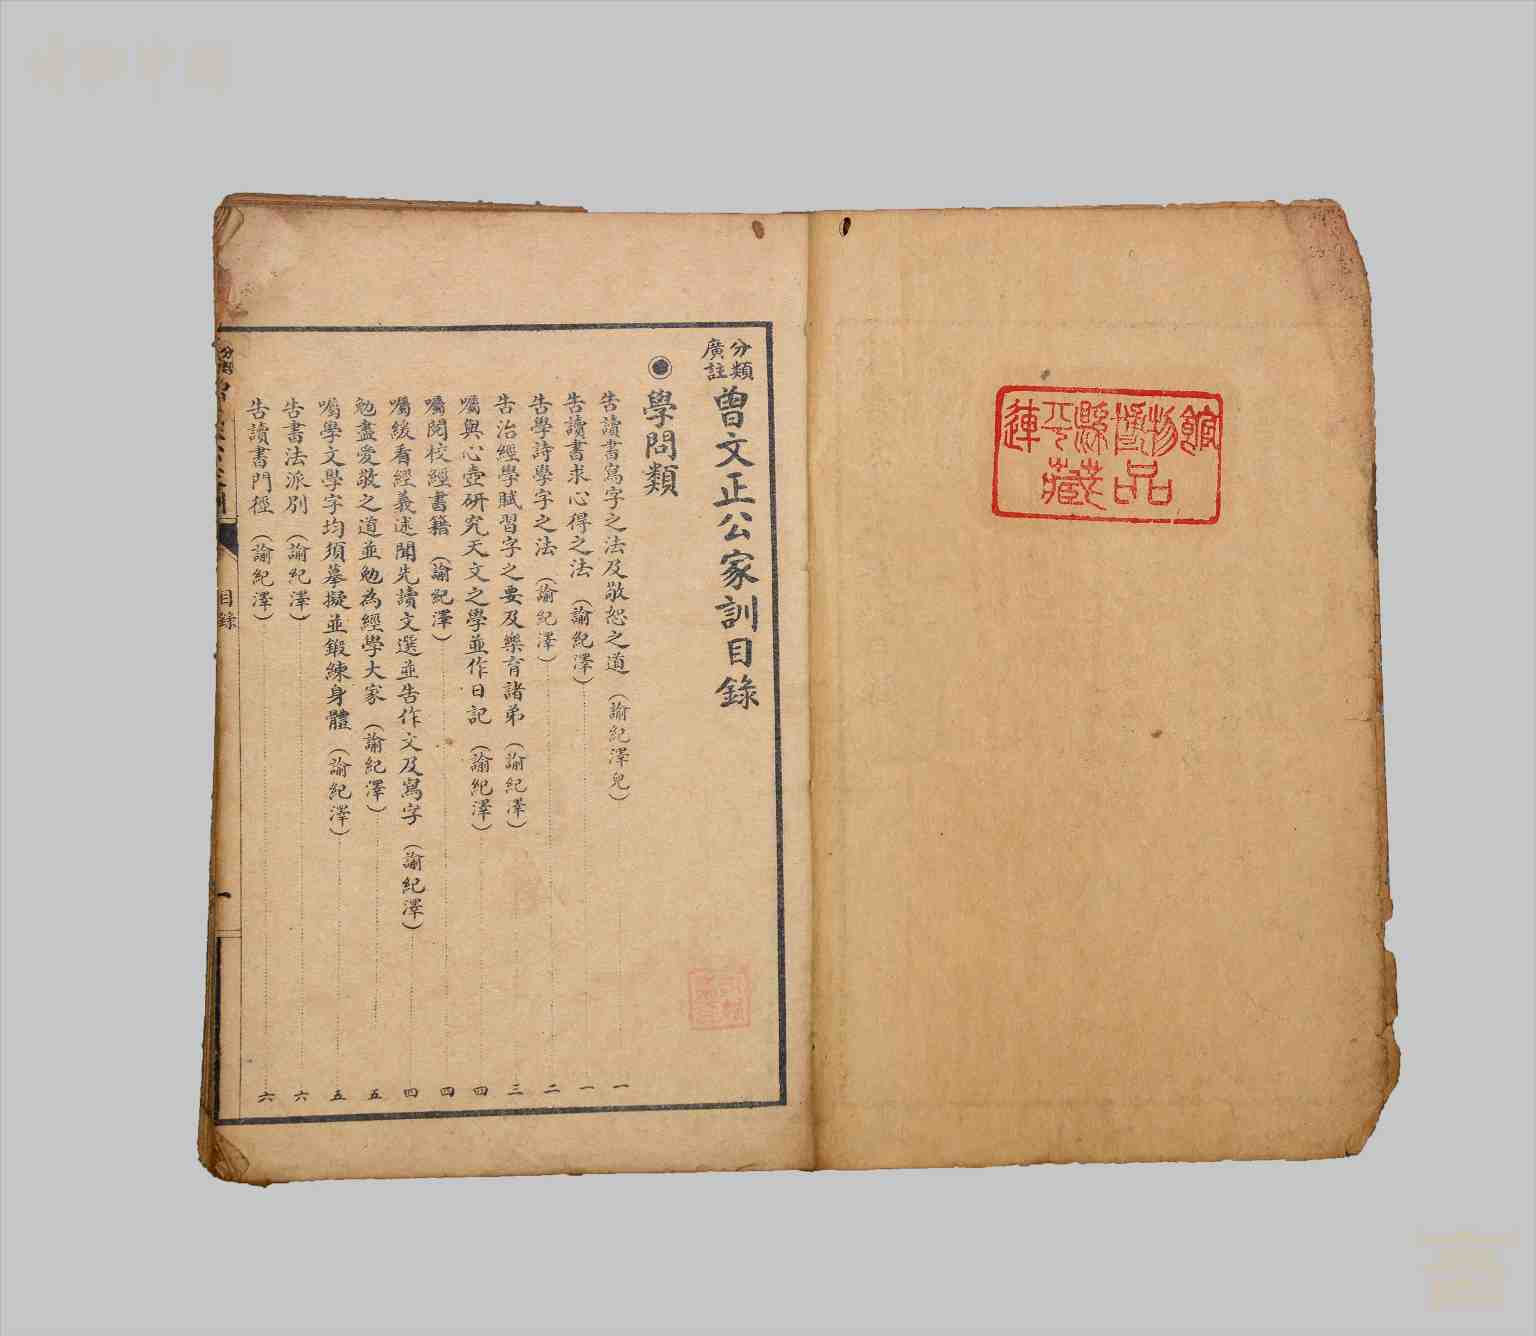 連平縣博物館
藏品
分類
廣註
曾文正公家訓目錄
學問類
告讀書寫字之法及敬恕之道(諭紀澤兒)一
告讀書求心得之法(諭紀澤)一
告學詩學字之法(諭紀澤)二
告治經學賦習字之要及樂育諸弟(諭紀澤)三
囑與心壺研究天文之學並作日記(諭紀澤)四
囑閱校經書籍(諭紀澤)四
囑緩看經義述聞先讀文選並告作文及寫字(諭紀澤)四
勉盡愛敬之道並勉為經學大家(諭紀澤)五
囑學文學字均須摹擬並鍛練身體(諭紀澤)五
告書法派別(諭紀澤)六
告讀書門徑(諭紀澤)六
目錄
一